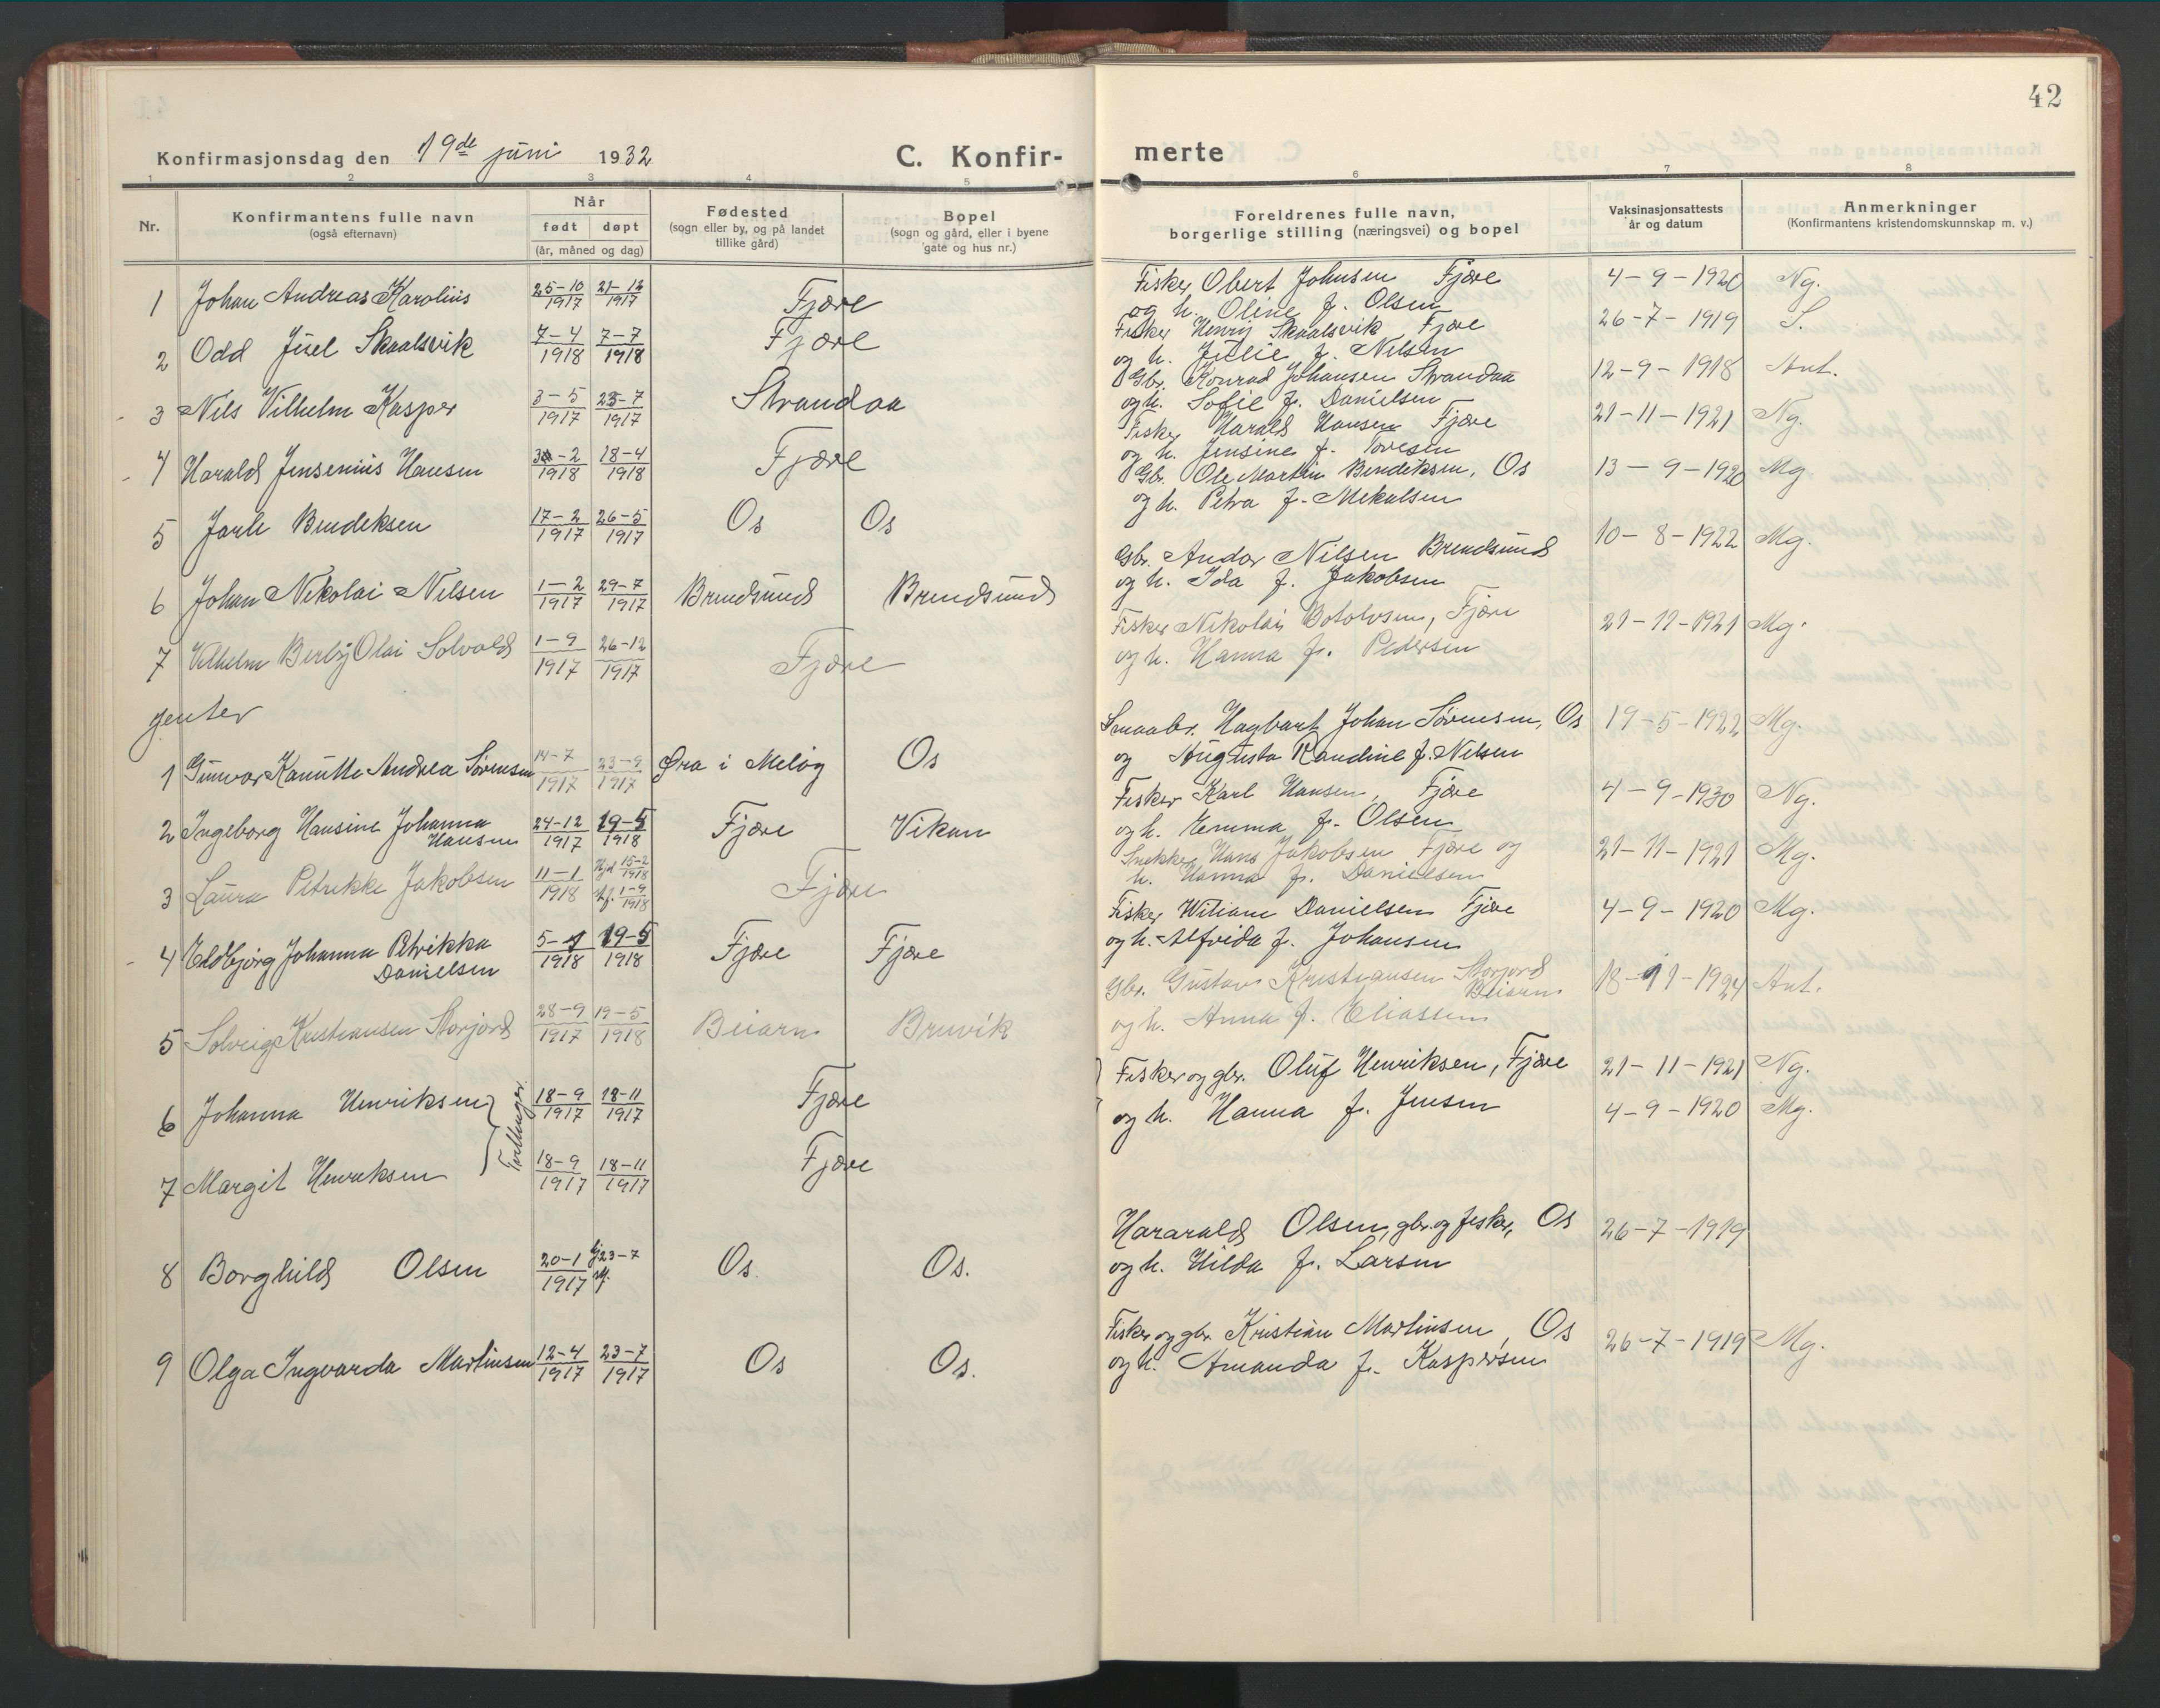 42
Konfirmasjonsdag den 19de juni 1932 C. Konfir- merte
1 2 3 4 5 6 7 8
Nr. Konfirmantens fulle navn (også efternavn)
Når født døpt (år, måned og dag)
Fødested (sogn eller by, og på landet tillike gård)
Bopel (sogn og gård, eller i byene gate og hus nr.)
Foreldrenes fulle navn, borgerlige stilling (næringsvei) og bopel
Vaksinasjonsattests år og datum
Anmerkninger (Konfirmantens kristendomskunnskap m. v.)
1 Johan Andreas Karolius 25-10 1917 21-12 1917 Fjære
Fisker Obert Johnsen Fjære 4-9-1920 Ng.
og h. Oline f. Olsen
2 Odd Juel Skaalsvik 7-4 1918 7-7 1918 Fjære
Fisker Henry Skaalsvik Fjære 26-7-1919 S.
og h. Julie f. Nilsen
3 Nils Vilhelm Kasper 3-5 1917 23-7 1917 Strandaa
Gbr. Konrad Johansen Strandaa 12-9-1918 Ant.
og h. Sofie f. Danielsen
4 Harald Jensenius Hansen -2 1918 18-4 1918 Fjære
Fisker Harald Hansen Fjære 21-11-1921 Ng.
og h. Jensine f. Toresen
5 Jarle Bendeksen 17-2 1917 26-5 1917 Os Os
Gbr. Ole Martin Bendeksen, Os 13-9-1920 Mg.
og h. Petra f. Mekalsen
6 Johan Nikolai Nilsen 1-2 1917 29-7 1917 Brendsund Brendsund
Gbr. Andor Nilsen Brendsund 10-8-1922 Mg.
og h. Ida f. Jakobsen
7 Vilhelm Olai Solvold 1-9 1917 26-12 1917 Fjære
Fisker Nikolai Botolvsen, Fjære 21-11-1921 Mg.
og h. Hanna f. Pedersen
genter
1 Gunvor Kanutte Andrea Sørensen 14-7 1917 23-9 1917 Øra i Meløy Os
Smaabr. Hagbart Johan Sørensen, Os 19-5-1922 Mg.
og Augusta Randine f. Nilsen
2 Ingeborg Hansine Johanna Hansen 24-12 1917 19-5 1918 Fjære Vikan
Fisker Karl Hansen, Fjære 4-9-1930 Ng.
og h. Emma f. Olsen
3 Laura Petrikke Jakobsen 11-1 1918 Hjd 15-2 1918 1-9 1918 Fjære
Snekker Hans Jakobsen Fjære og 21-11-1921 Mg.
h. Hanna f. Danielsen
4 Eldbjørg Johanna Petrikka Danielsen 5-1 1918 19-5 1918 Fjære Fjære
Fisker Wiliam Danielsen Fjære 4-9-1920 Mg.
og h. Alfrida f. Johansen
5 Solveig Kristiansen Storjord 28-9 1917 19-5 1918 Beiarn Bruvik
Gbr. Gustav Kristiansen Storjord Beiarn 18-11-1924 Ant.
og h. Anna f. Eliassen
6 Johanna Henriksen 18-9 1917 18-11 1917 Fjære
Tvillinger.
Fisker og gbr. Oluf Henriksen, Fjære 21-11-1921 Ng.
og h. Hanna f. Jensen 4-9-1920 Mg.
7 Margit Henriksen 18-9 1917 18-11 1917 Fjære
8 Borghild Olsen 20-1 1917 23-7 Os. Os.
Hararald Olsen, gbr. og fisker, Os 26-7-1919
og h. Hilda f. Larsen
9 Olga Ingvarda Martinsen 12-4 1917 23-7 1917 Os Os.
Fisker og gbr. Kristian Martinsen, Os 26-7-1919 Mg.
og h. Amanda f. Kaspersen